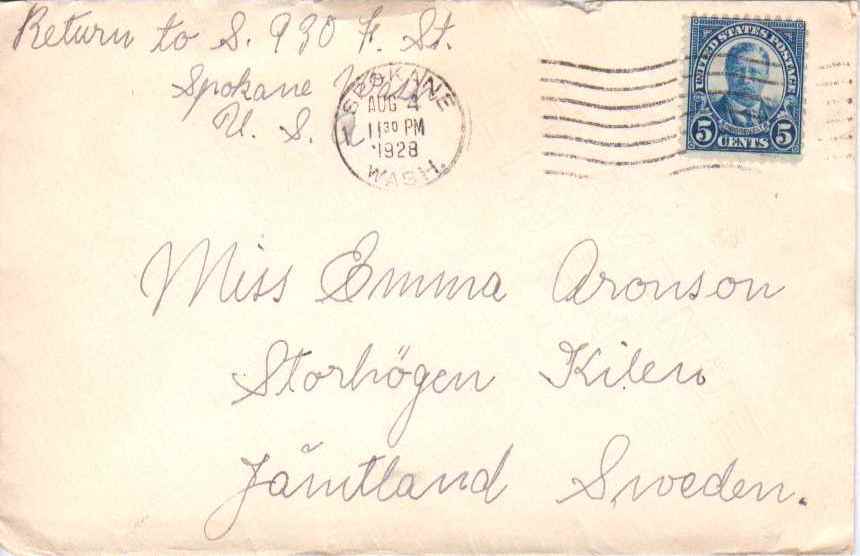 Return to S. 930 F. St.
Spokane Wash
U. S.
SPOKANE
AUG 4
11 30 PM
1928
WASH.
UNITED STATES POSTAGE
5 CENTS 5
Miss Emma Aronson
Storhögen Kilen
Jämtland Sweden.